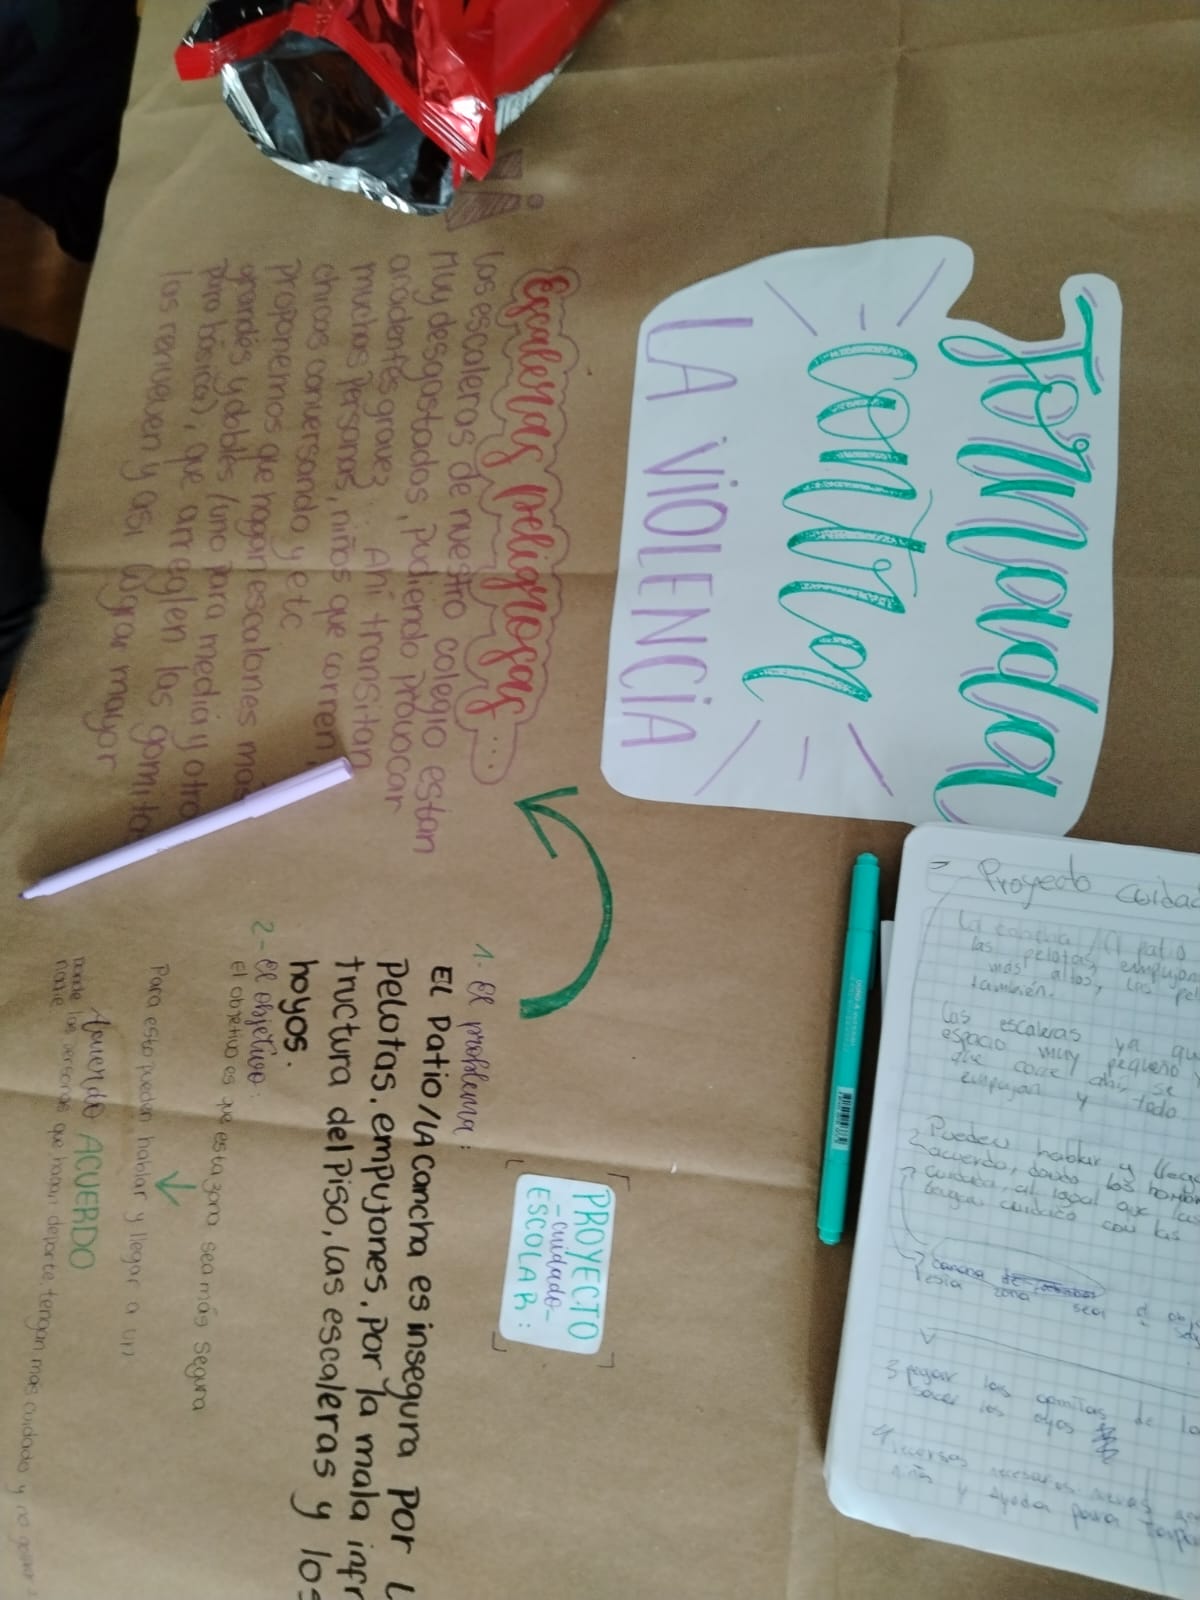 Jornada
contra
LA VIOLENCIA
Escaleras peligrosas...
las escaleras de nuestro colegio estan
muy desgastadas, pudiendo provocar
accidentes graves. Ahí transitan
muchas personas, niños que corren,
chicos conversando y etc
Proponemos que hagan escalones mas
grandes y dobles (uno para media y otro
para básica), que arreglen las gomita
las renueven y así lograr mayor
PROYECTO
-cuidado-
ESCOLAR:
1- El problema:
EL Patio/LA cancha es insegura por L
Pelotas, empujones, por la mala infr
tructura del Piso, las escaleras y los
hoyos.
2- El objetivo:
El objetivo es que esta zona sea más segura
Para esto pueden hablar y llegar a un
ACUERDO
Donde las personas que hagan deporte, tengan más cuidado y no
nadie
- Proyecto cuidad
La cancha / el patio
las pelotas, empujon
mas altos, las pel
también.
Las escaleras ya qu
espacio muy pequeño y
que corre ahí, se
empujan y todo
2 Pueden hablar y llega
acuerdo, donde los hombr
cuidado, al igual que
tengan cuidado con las
cancha
esta zona sea
3 pegar las gomitas de la
sacar los oyos
4 recursos necesarios
y ayuda para